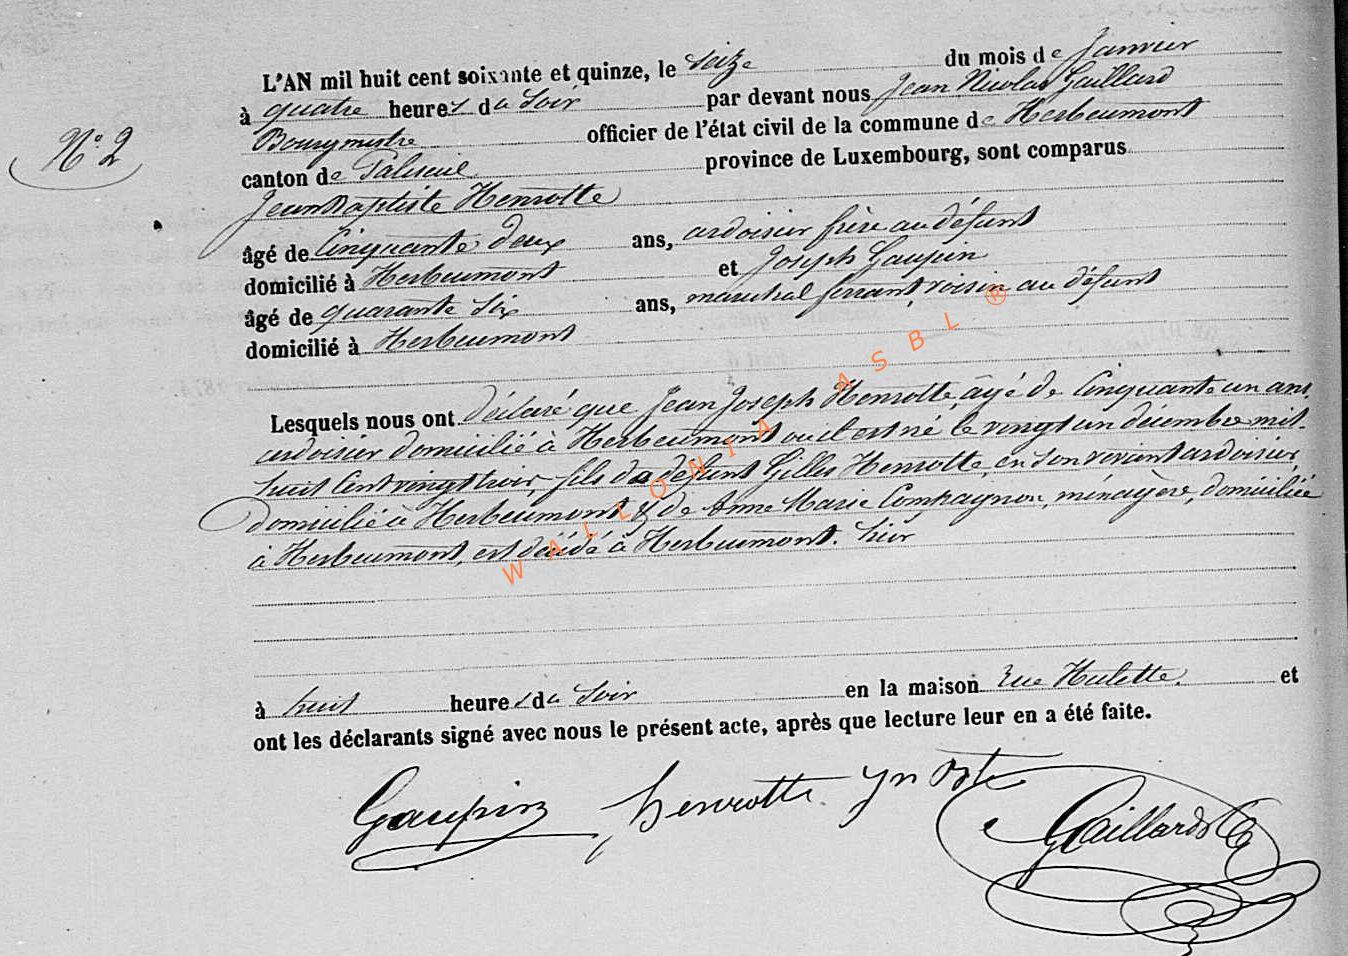 L'AN mil huit cent soixante et quinze, le Seize du mois de Janvier
à quatre heures du Soir par devant nous Jean Nicolas Gaillard
Bourgmestre officier de l'état civil de la commune de Herbeumont
N° 2
canton de Paliseul province de Luxembourg, sont comparus
Jean Baptiste Henrotte
âgé de Cinquante deux ans, ardoisier frère au défunt
domicilié à Herbeumont et Joseph Gaupin
âgé de quarante Six ans, maréchal ferrant, voisin au défunt
domicilié à Herbeumont
Lesquels nous ont déclaré que Jean Joseph Henrotte, âgé de Cinquante un ans,
ardoisier domicilié à Herbeumont ou il est né le vingt un décembre mil
huit Cent vingt trois, fils du défunt Gilles Henrotte, en son vivant ardoisier,
domicilié à Herbeumont & de Anne Marie Compagnon, ménagère, domiciliée
à Herbeumont, est décédé à Herbeumont. hier
à huit heures du Soir en la maison rue Hulette. et
ont les déclarants signé avec nous le présent acte, après que lecture leur en a été faite.
Gaupin Henrotte Jn Bte Gaillard
WALLONIA ASBL ®